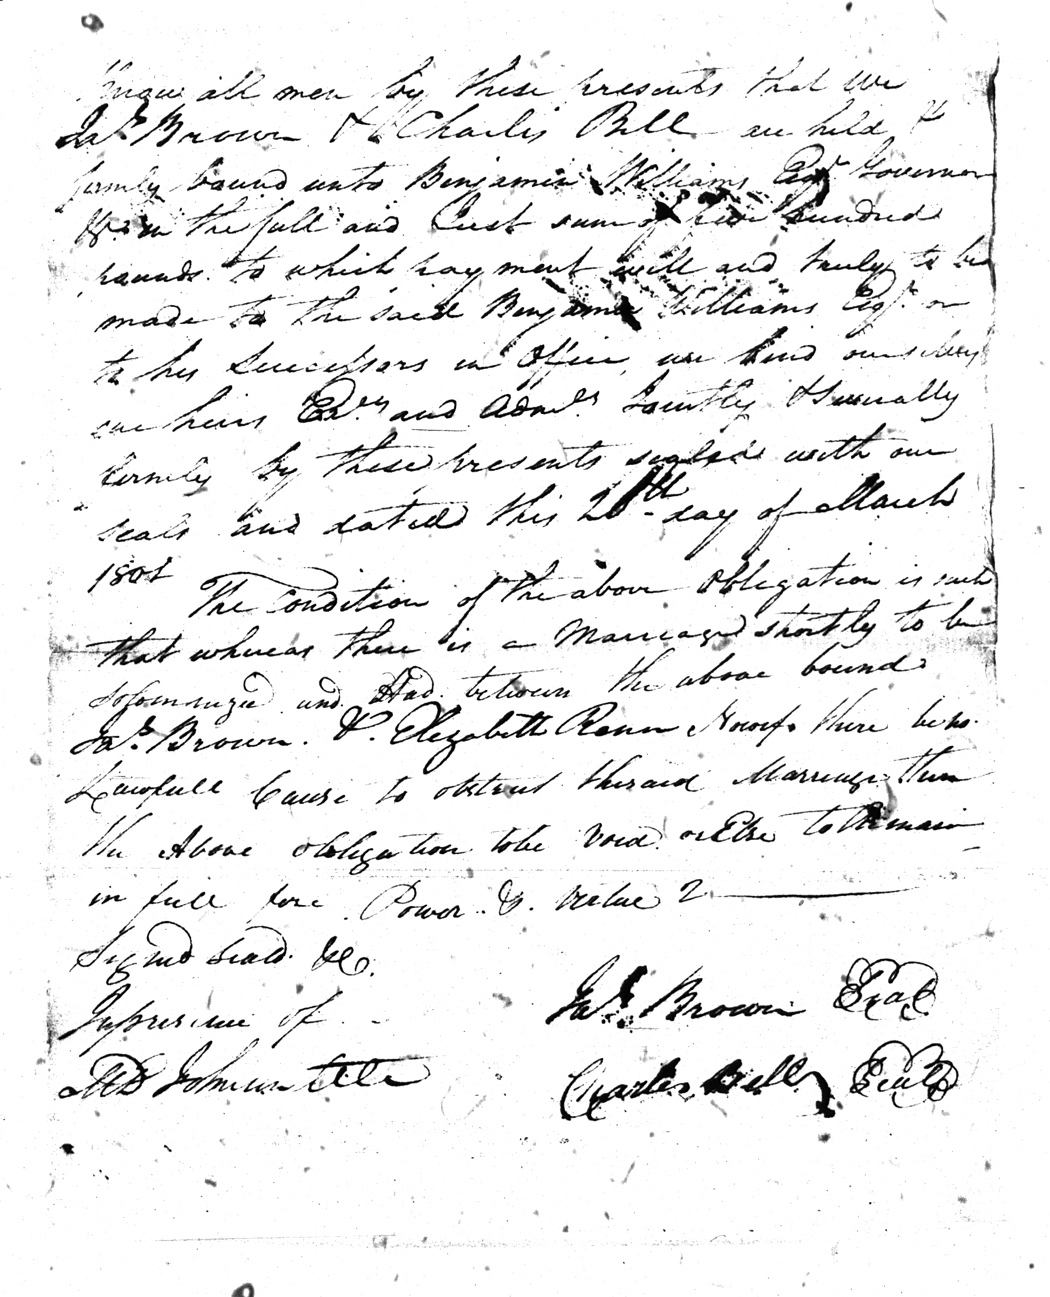 Know all men by these presents that We
Jas. Brown & Charles Bell are held &
firmly bound unto Benjamin Williams Esqr. Governor
&c. in the full and Just sum of five hundred
pounds to which payment will and truly to be
made to the said Benjamin Williams Esqr. or
to his Successors in Office, we bind ourselves
our heirs Exrs. and Admrs. Jointly & Severally
firmly by these presents sealed with our
seals and dated this 20th day of March
1801
The Condition of the above Obligation is such
that whereas there is a Marriage shortly to be
solemnized and Had between the above bound
Jas. Brown. &. Elizabeth Now if there be no
Lawfull Cause to obstruct the said Marriage then
the Above obligation to be Void or Else to Remain
in full force Power. &. Virtue
Signd Seald. &c.
In presence of
Jas. Brown Seal
Charles Bell Seal